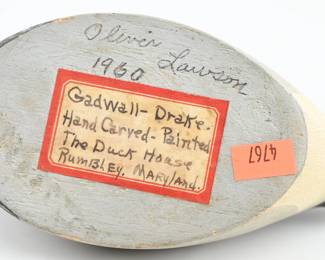 Oliver Lawson
1960
Gadwall-Drake.
Hand Carved-Painted
The Duck House
Rumbley, Maryland.
4767